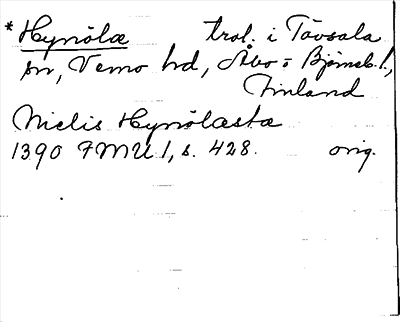 * Hynölæ trol. i Tövsala
sn, Vemo hd, Åbo o Bjbrneb. l.,
Finland
Nielis Hynölæsta
1390 FMU 1, s. 428. orig.